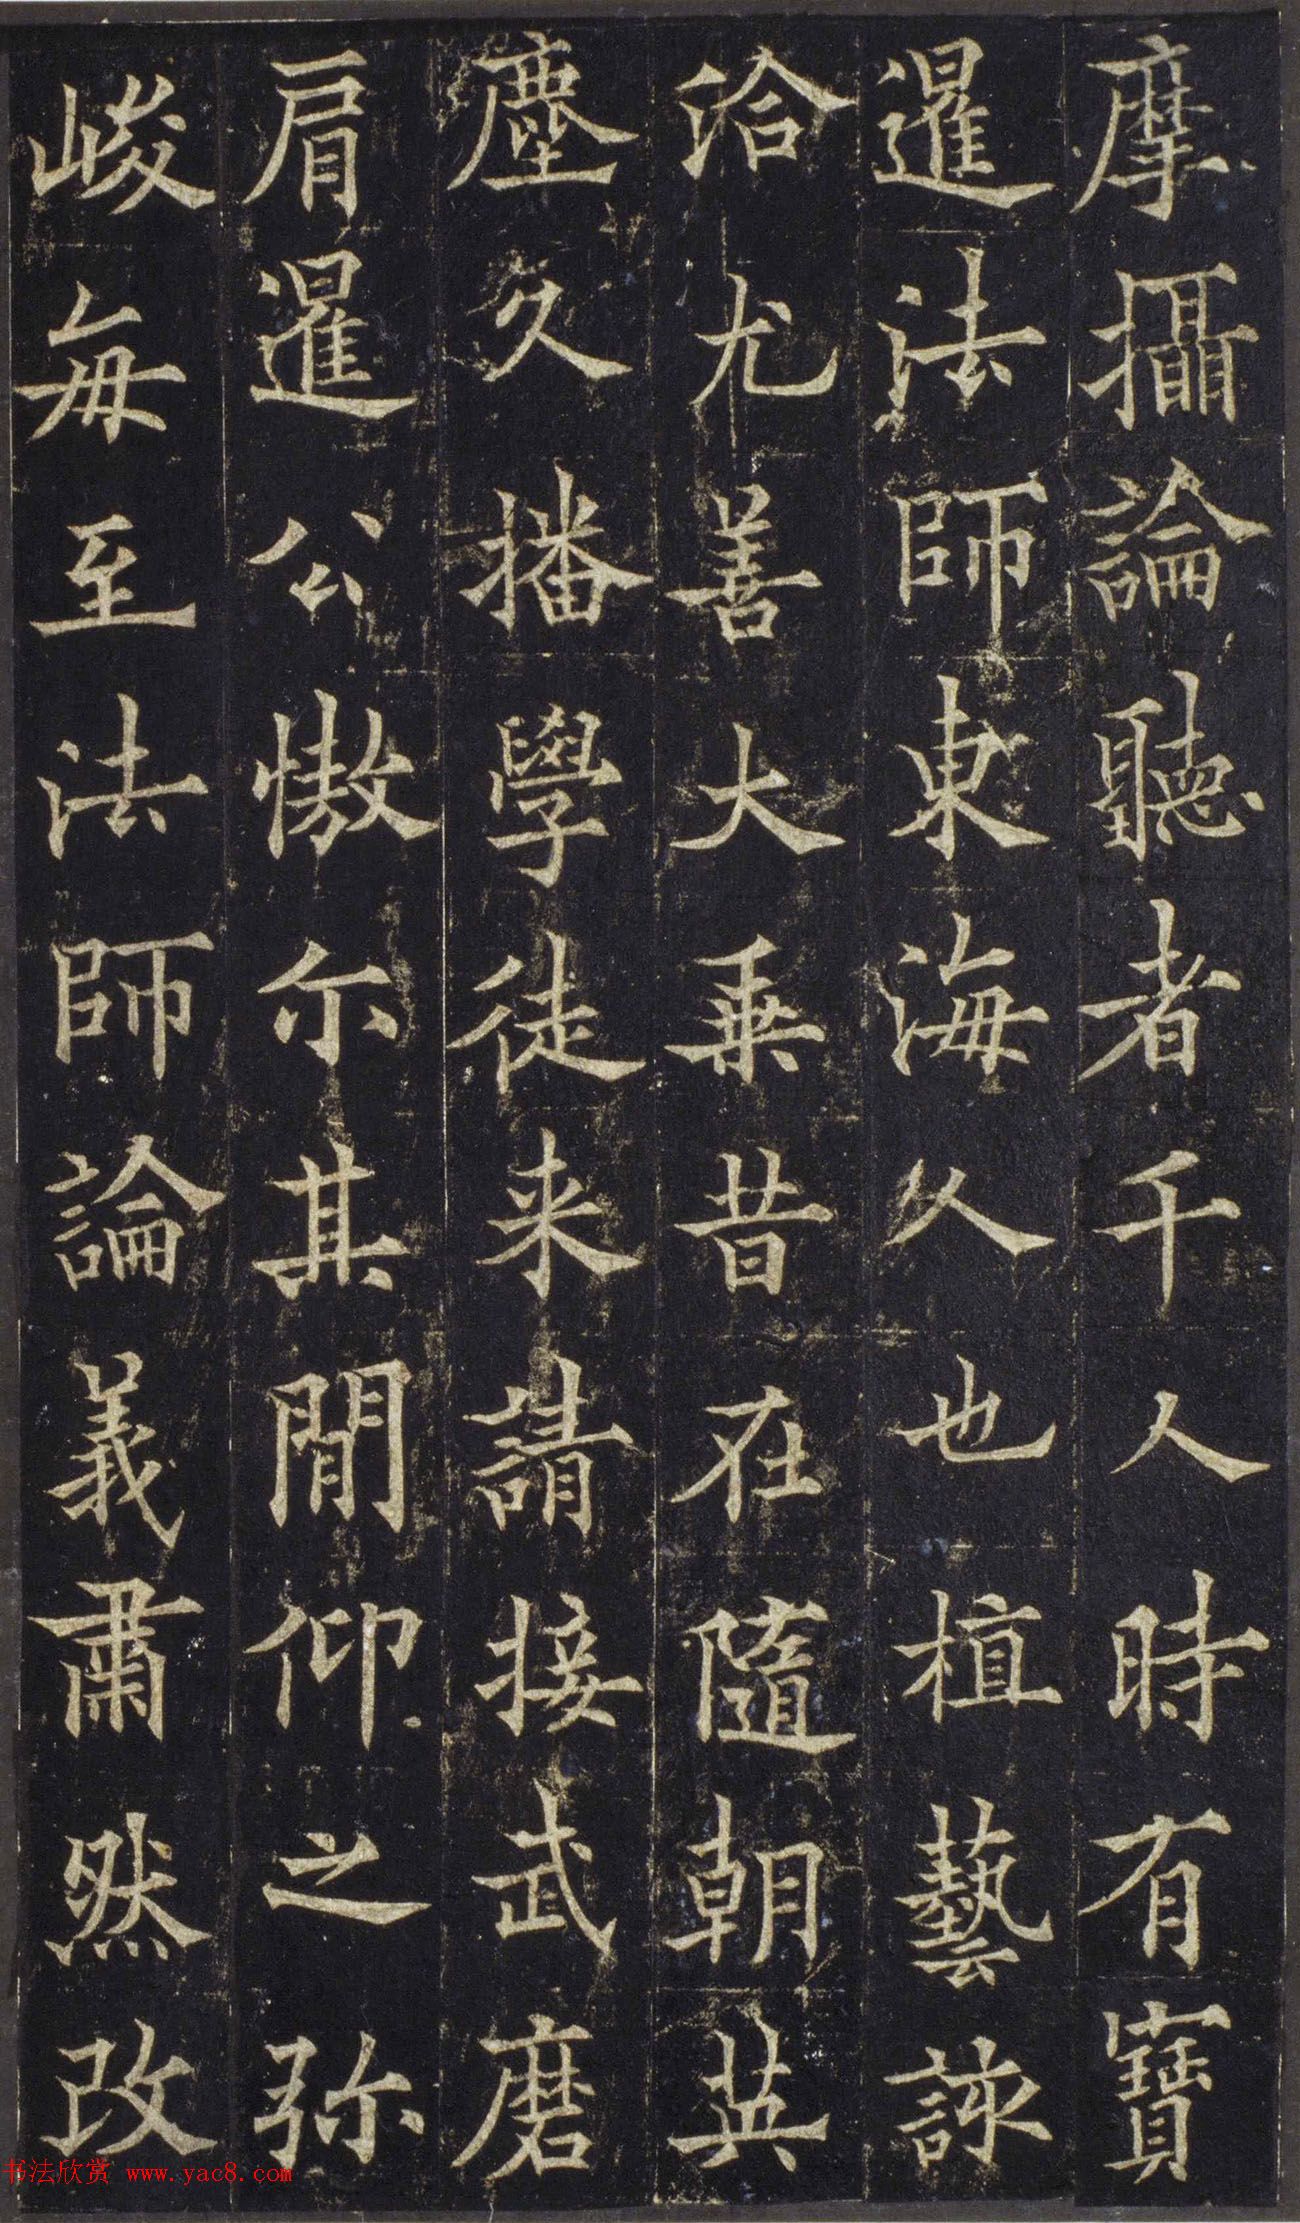 摩攝論聽者千人時有寶
暹法師東海人也植藝詠
洽尤善大乗昔在隨朝英
塵久播學徒来請接武磨
肩暹公慠尓其閒仰之弥
峻每至法師論義肅然改
书法欣赏 www.yac8.com